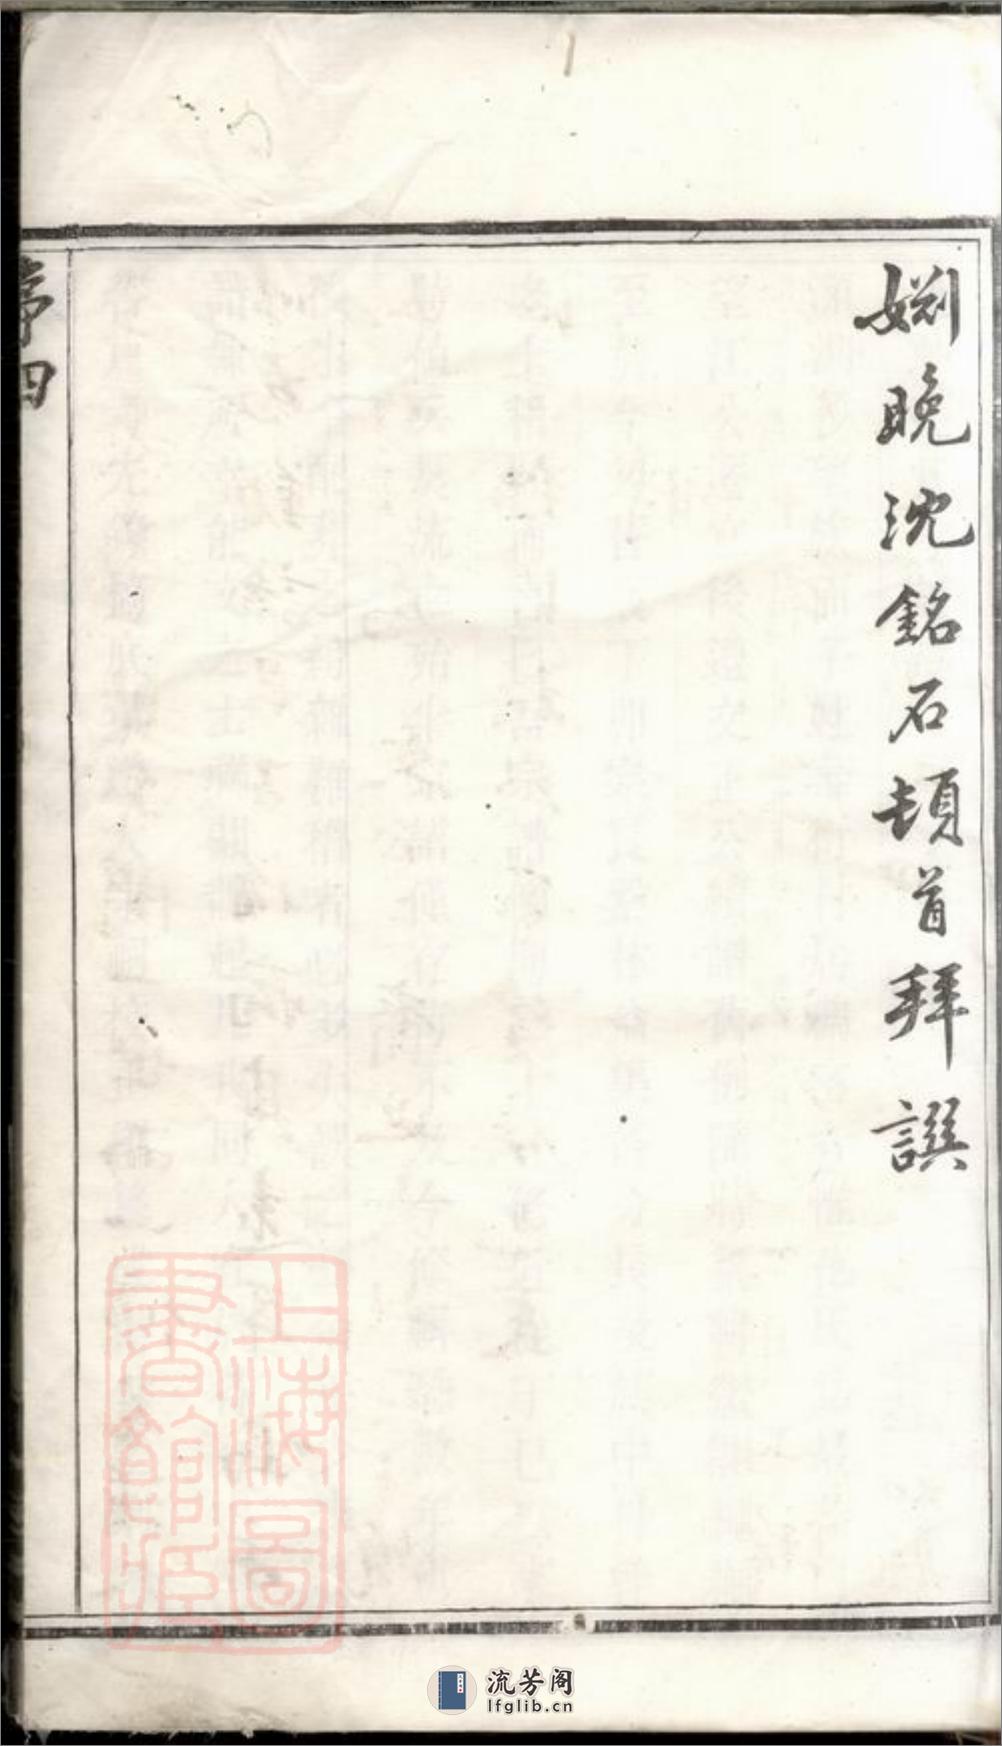 姻晚沈銘石頓首拜譔
序四
上海圖
書館藏
流芳阁
lfglib.cn